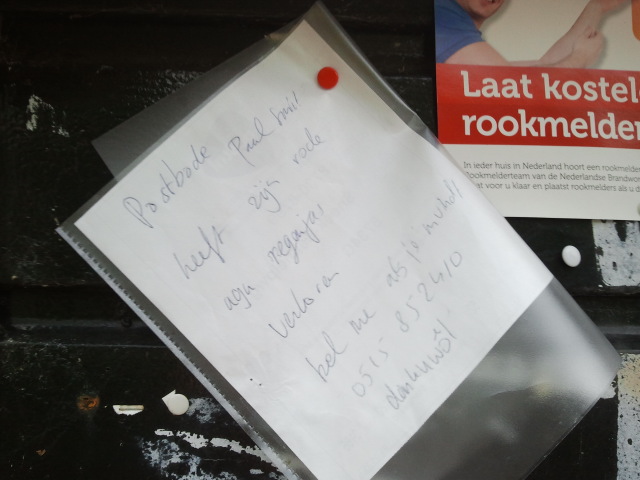 Postbode Paul Smit
heeft zijn rode
agu regenjas
verloren
bel me als je m vindt
0515 852410
dankuwel
Laat kostel
rookmelder
In ieder huis in Nederland hoort een rookmelde
ookmelderteam van de Nederlandse Brandwo
at voor u klaar en plaatst rookmelders als u d